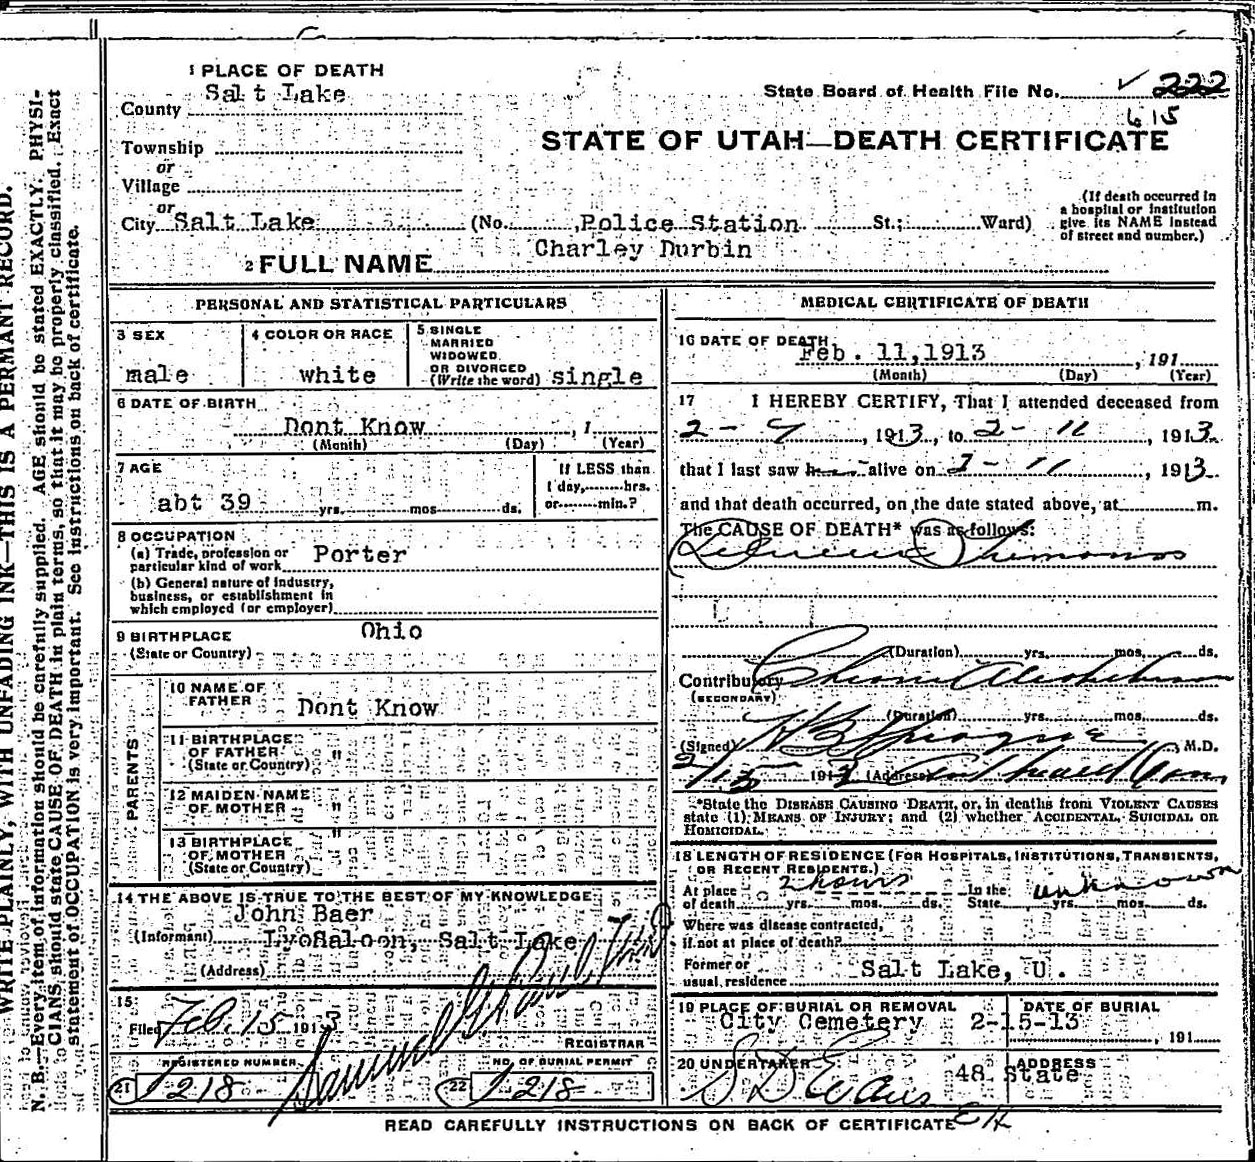 WRITE PLAINLY, WITH UNFADING INK—THIS IS A PERMANT RECORD.
N. B.—Every item of information should be carefully supplied. AGE should be stated EXACTLY. PHYSI-
CIANS should state CAUSE OF DEATH in plain terms, so that it may be properly classified. Exact
statement of OCCUPATION is very important. See instructions on back of certificate.
1 PLACE OF DEATH
County Salt Lake
State Board of Health File No. 222
615
STATE OF UTAH—DEATH CERTIFICATE
Township
or
Village
or
City Salt Lake (No. , Police Station St.; Ward)
(If death occurred in
a hospital or institution
give its NAME instead
of street and number.)
2 FULL NAME Charley Durbin
PERSONAL AND STATISTICAL PARTICULARS
3 SEX
male
4 COLOR OR RACE
white
5 SINGLE
MARRIED
WIDOWED
OR DIVORCED
(Write the word) single
6 DATE OF BIRTH
Dont Know , 1
(Month) (Day) (Year)
7 AGE
abt 39 yrs. mos. ds.
If LESS than
1 day, hrs.
or min.?
8 OCCUPATION
(a) Trade, profession or
particular kind of work Porter
(b) General nature of industry,
business, or establishment in
which employed (or employer)
9 BIRTHPLACE
(State or Country) Ohio
PARENTS
10 NAME OF
FATHER Dont Know
11 BIRTHPLACE
OF FATHER "
(State or Country)
12 MAIDEN NAME
OF MOTHER "
13 BIRTHPLACE "
OF MOTHER
(State or Country)
14 THE ABOVE IS TRUE TO THE BEST OF MY KNOWLEDGE
John Baer
(Informant) LyoSaloon, Salt Lake
(Address)
15
Filed Feb. 15 1913
REGISTRAR
REGISTERED NUMBER
21 218
NO. OF BURIAL PERMIT
22 218
MEDICAL CERTIFICATE OF DEATH
16 DATE OF DEATH
Feb. 11,1913 , 191
(Month) (Day) (Year)
17 I HEREBY CERTIFY, That I attended deceased from
, 1913, to 2-11 , 1913
that I last saw alive on 2-11 1913
and that death occurred, on the date stated above, at m.
The CAUSE OF DEATH* was as follows:
Delirium Tremens
(Duration) yrs. mos. ds.
Contributory Chronic Alcoholism
(SECONDARY)
(Duration) yrs. mos. ds.
(Signed) H B Sprague M.D.
2/15 1913 (Address)
*State the DISEASE CAUSING DEATH, or, in deaths from VIOLENT CAUSES
state (1) MEANS OF INJURY; and (2) whether ACCIDENTAL, SUICIDAL OR
HOMICIDAL.
18 LENGTH OF RESIDENCE (FOR HOSPITALS, INSTITUTIONS, TRANSIENTS,
OR RECENT RESIDENTS.)
At place 2 hours In the unknown
of death yrs. mos. ds. State yrs. mos. ds.
Where was disease contracted,
if not at place of death?
Former or
usual residence Salt Lake, U.
19 PLACE OF BURIAL OR REMOVAL
City Cemetery
DATE OF BURIAL
2-15-13
, 191
20 UNDERTAKER
S D Evans
ADDRESS
48 State
READ CAREFULLY INSTRUCTIONS ON BACK OF CERTIFICATE